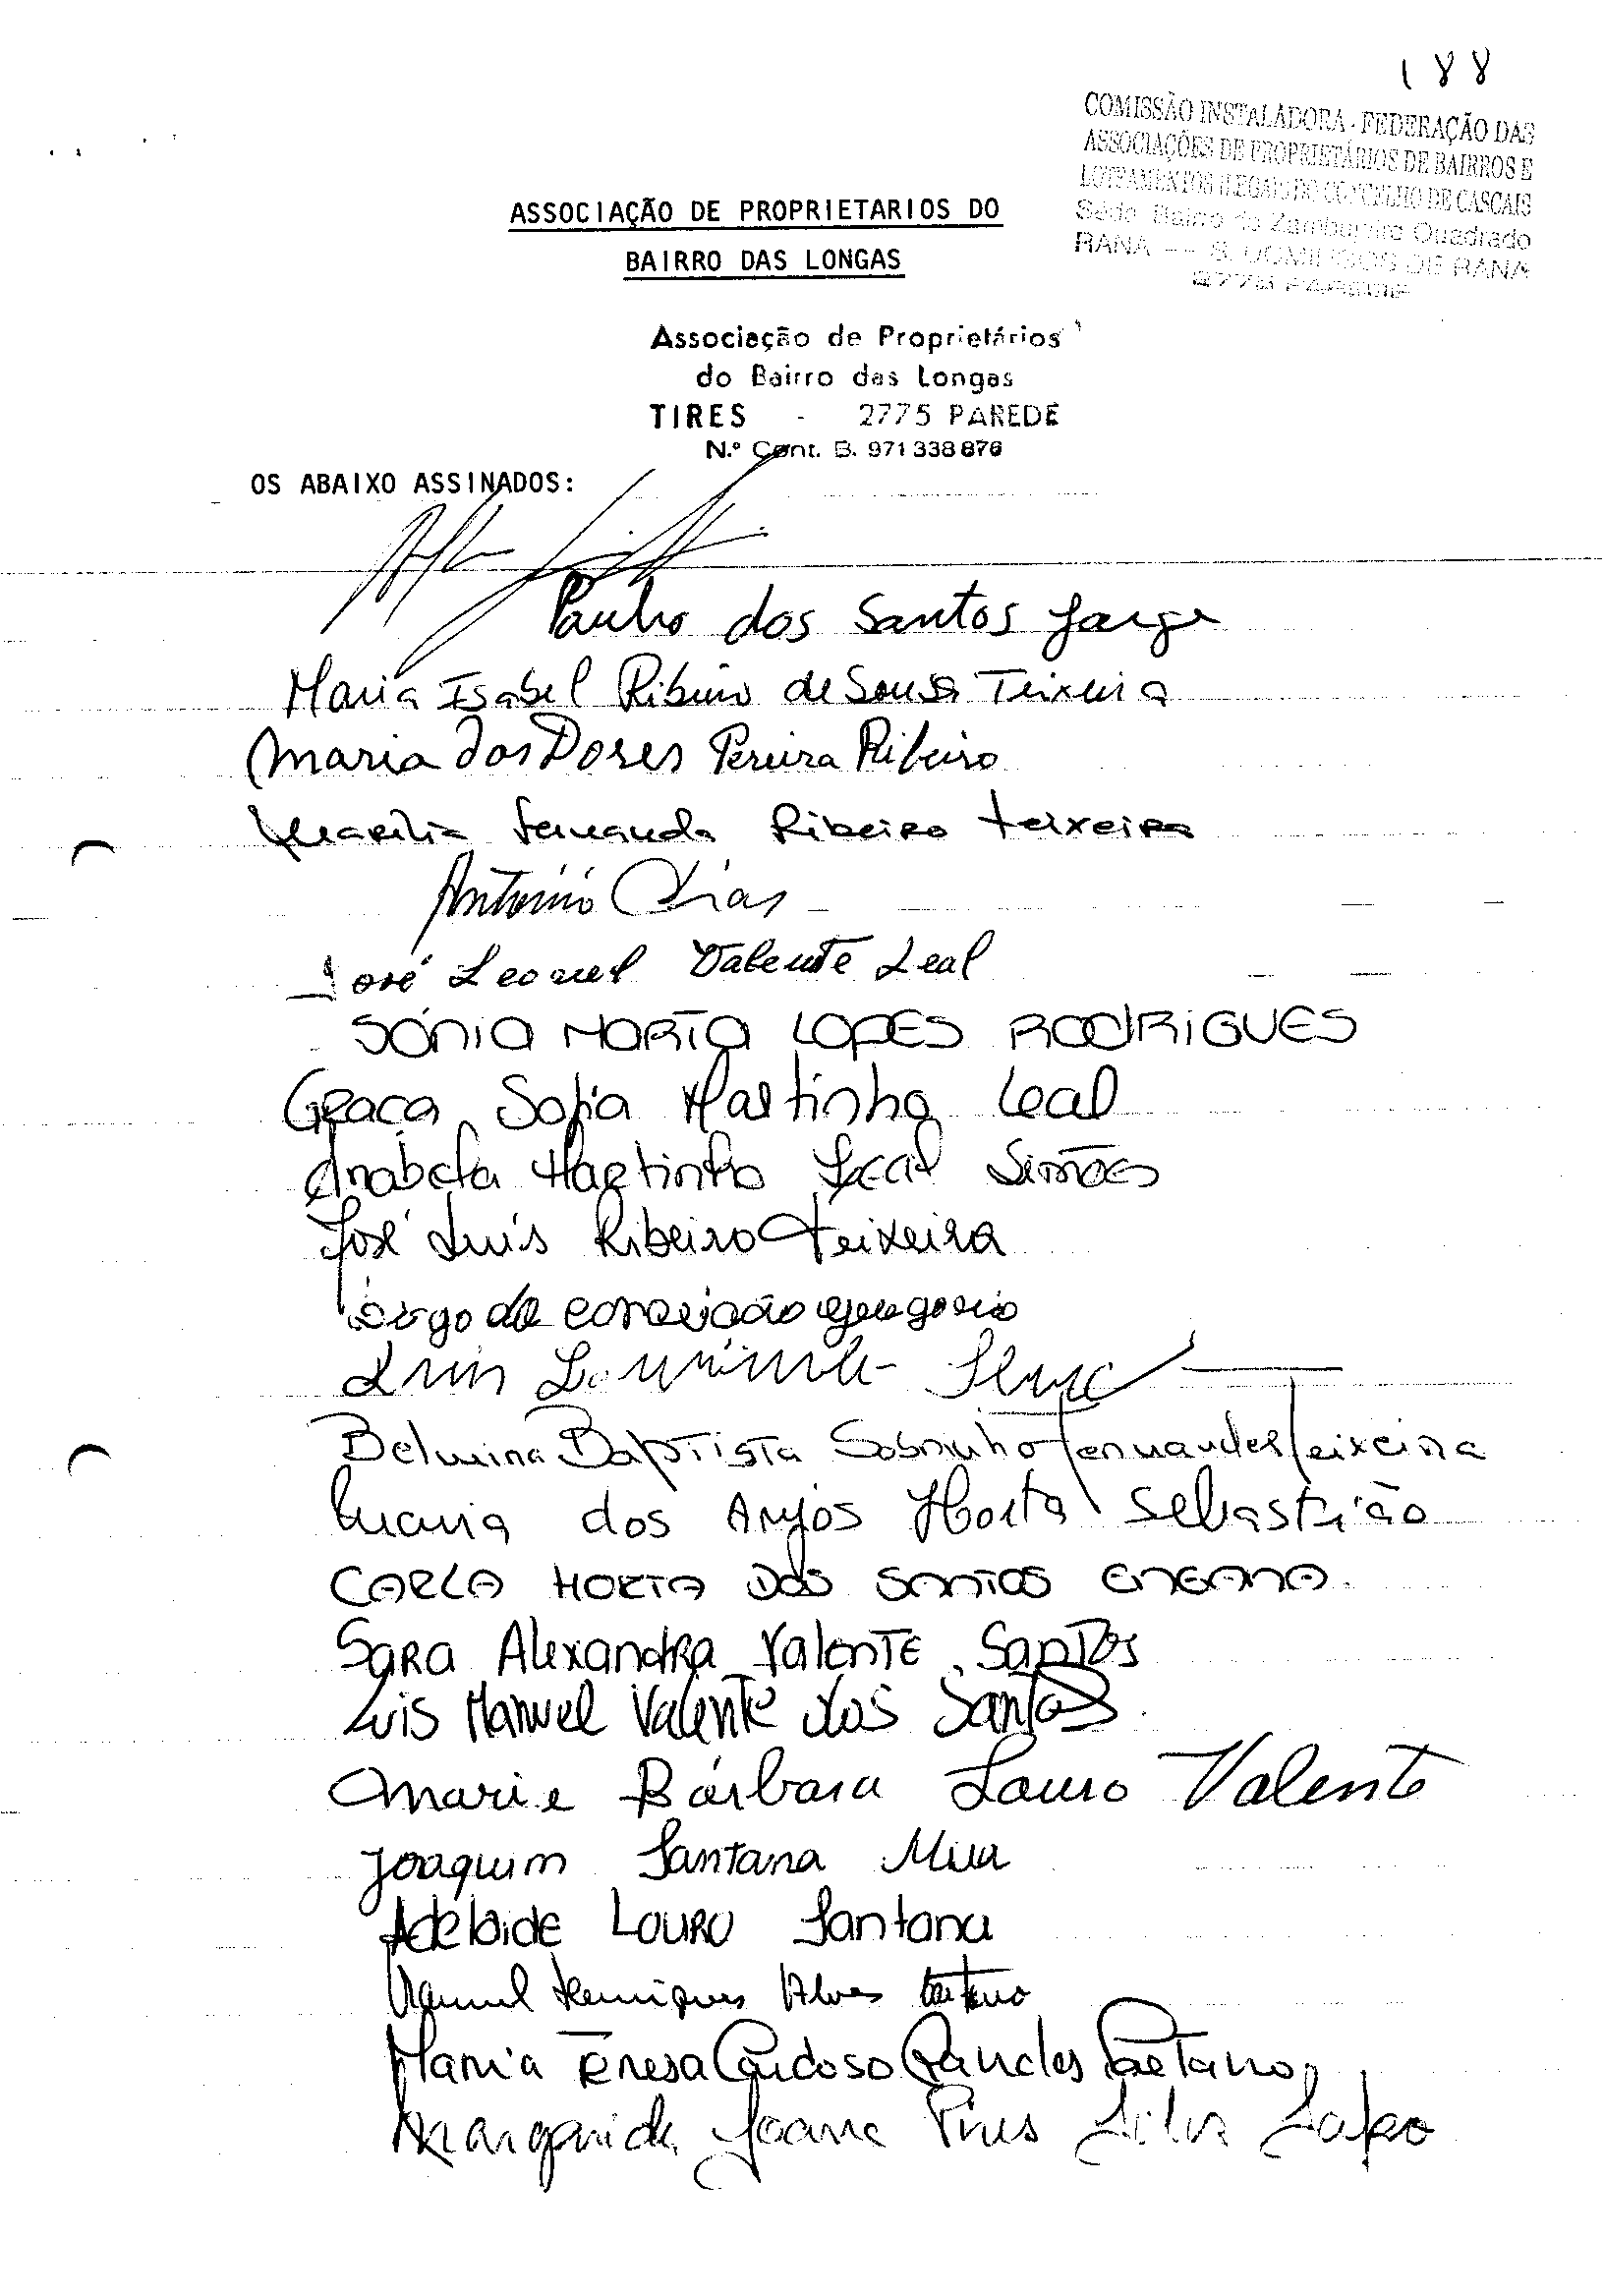 188
COMISSÃO INSTALADORA - FEDERAÇÃO DAS
ASSOCIAÇÕES DE PROPRIETÁRIOS DE BAIRROS E
LOTEAMENTOS ILEGAIS DO CONCELHO DE CASCAIS
Sede Bairro do Zambujeiro Quadrado
RANA -- S. DOMINGOS DE RANA
2775 PAREDE
ASSOCIAÇÃO DE PROPRIETARIOS DO
BAIRRO DAS LONGAS
Associação de Proprietários
do Bairro das Longas
TIRES - 2775 PAREDE
N.º Cont. B. 971 338 876
OS ABAIXO ASSINADOS:
dos Santos Jorge
Maria Isabel Ribeiro de Sousa Teixeira
Maria das Dores Pereira Ribeiro
Marília Fernanda Ribeiro Teixeira
António Dias
José Leonel Valente Leal
SÓNIA MARTA LOPES RODRIGUES
Graça Sofia Martinho Leal
Anabela Martinho Leal Simões
José Luís Ribeiro Teixeira
da conceição gregorio
Luis
Belmira Baptista Sobrinho Fernandes Teixeira
Maria dos Anjos Horta Sebastião
CARLA HORTA DOS SANTOS ENGANA.
Sara Alexandra Valente Santos
Luis Manuel Valente dos Santos
Bárbara Louro Valente
Joaquim Santana
Adelaide LOURO Santana
Manuel Henriques Alves
Maria Teresa Cardoso Caetano
Margarida Joana Pires Silva